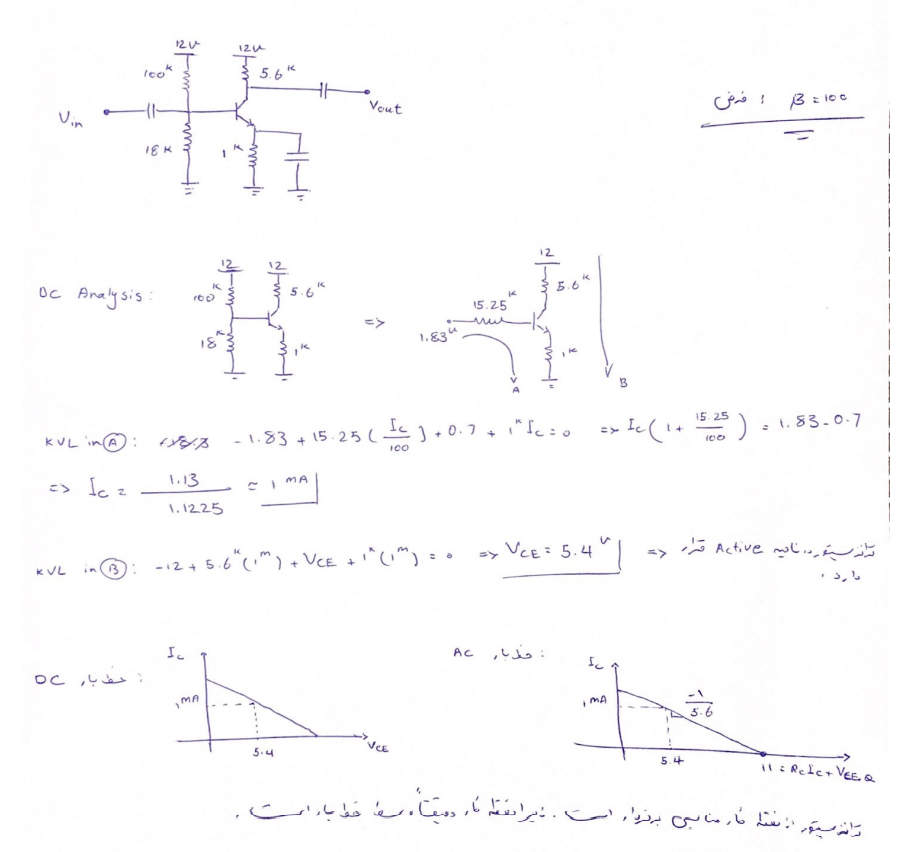 12V 12V
100K 5.6K
Vin Vout
18K 1K
فرض : β = 100
DC Analysis: 12 12 100K 5.6K 18K 1K => 1.83V 15.25K 12 5.6K 1K A B
KVL in A: -1.83 + 15.25 (Ic/100) + 0.7 + 1K Ic = 0 => Ic (1 + 15.25/100) = 1.83 - 0.7
=> Ic = 1.13/1.1225 ≈ 1 mA
KVL in B: -12 + 5.6K (1m) + VCE + 1K (1m) = 0 => VCE = 5.4V => ترانزیستور در ناحیه Active قرار
دارد.
خط بار DC :
Ic
1mA
5.4
VCE
خط بار AC :
Ic
1mA
-1/5.6
5.4
11 = RcIc + VEE,Q
ترانزیستور از نقطه کار مناسبی برخوردار است. زیرا نقطه کار دقیقاً وسط خط بار است.